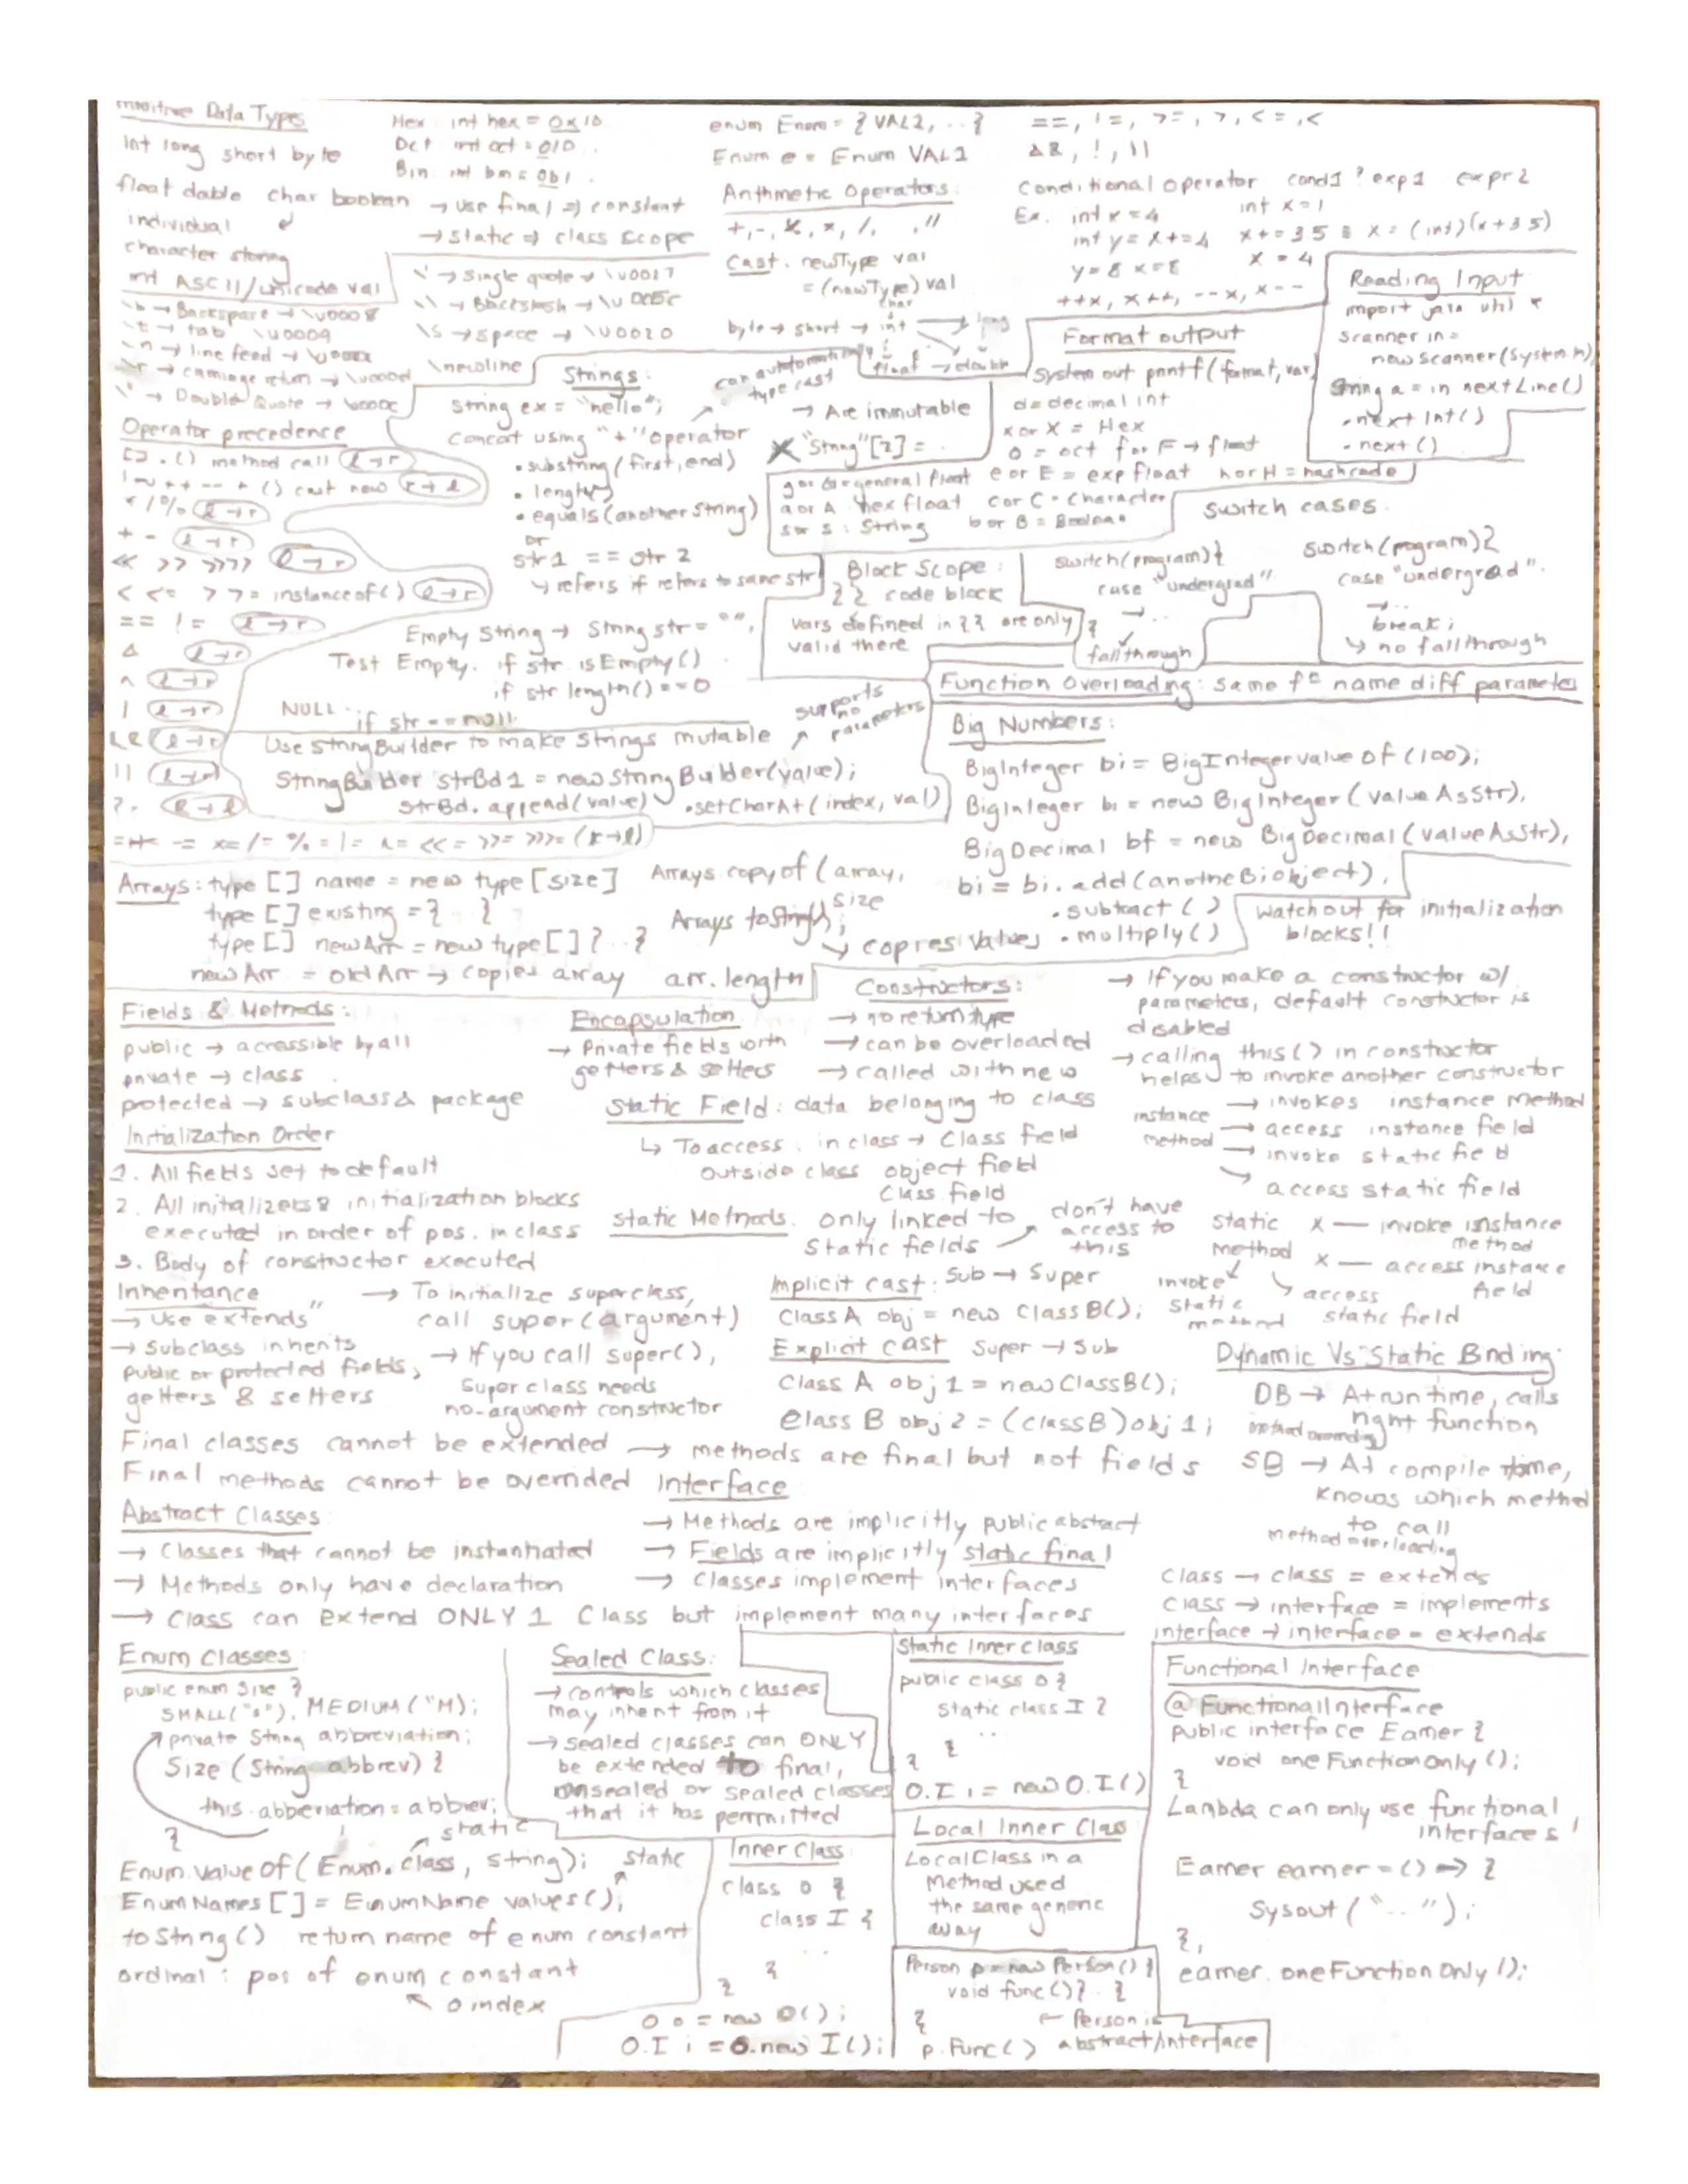 Primitive Data Types
int long short byte
float double char boolean
individual
character storing
int ASCII/unicode val
Hex: int hex = 0x10..
Oct: int oct = 010..
Bin: int bin = 0b1..
→ use final ⇒ constant
→ static ⇒ class scope
enum Enom = { VAL1, ..}
Enum e = Enum.VAL1
Arithmetic Operators:
Cast: newType var
= (newType) val
byte → short → int → long
char
float → double
can automatically
type cast
==, !=, >=, >, <=, <
&&, !, ||
Conditional operator cond1 ? exp1 expr2
Ex. int x = 4
int y = x += 4
y = 8 x = 8
int x = 1
x += 3.5 ≡ x = (int)(x + 3.5)
x = 4
++x, x++, --x, x--
\b → Backspace → \u0008
\t → tab \u0009
\n → line feed → \u000a
\r → carriage return → \u000d
\" → Double Quote →
\' → single quote → \u0027
\\ → Backslash → \u005c
\s → space → \u0020
\newline
Reading Input
import java.util.*
Scanner in =
new Scanner(System.in)
String a = in.nextLine()
.nextInt()
.next()
Format output
System.out.printf(format, var)
d = decimal int
x or X = Hex
o = oct f or F → float
g or G = general float e or E = exp float h or H = hashcode
a or A hex float c or C = Character
s or S : String b or B = Boolean
Strings:
String ex = "hello";
Concat using "+" operator
• substring(first, end)
• length()
• equals(anotherString)
or
str1 == str2
↳ refers if refers to same str
→ Are immutable
X "String"[2] = ..
Empty String → String str = "";
Test Empty. if str.isEmpty()
if str.length() == 0
NULL:
if str == null
Use StringBuilder to make strings mutable
supports
no
parameters
StringBuilder strBd1 = new StringBuilder(value);
strBd.append(value) .setCharAt(index, val)
Operator precedence
[] . () method call l→r
! ~ ++ -- + () cast new r→l
* / % l→r
+ - l→r
<< >> >>> l→r
< <= > >= instanceof() l→r
== != l→r
& l→r
^ l→r
| l→r
&& l→r
|| l→r
?:
-= *= /= %= |= ^= <<= >>= >>>= (r→l)
Block Scope:
{ } code block
vars defined in { } are only
valid there
switch cases:
switch(program){
case "undergrad":
→ ..
}
fallthrough
switch(program){
case "undergrad":
→ ..
break;
↳ no fallthrough
Function Overloading: same fn name diff parameter
Big Numbers:
BigInteger bi = BigInteger.valueOf(100);
BigInteger bi = new BigInteger(valueAsStr);
BigDecimal bf = new BigDecimal(valueAsStr);
bi = bi.add(anotheBiobject);
.subtract()
.multiply()
Watch out for initialization
blocks!!
Arrays: type [] name = new type[size]
type [] existing = { }
type [] newArr = new type[] {..}
newArr = oldArr → copies array arr.length
Arrays.copyOf(array,
size
Arrays toString();
↳ copies values
Fields & Methods:
public → accessible by all
private → class
protected → subclass & package
Initialization Order
1. All fields set to default
2. All initalizers & initialization blocks
executed in order of pos. in class
3. Body of constructor executed
Encapsulation
→ Private fields with
getters & setters
Constructors:
→ no return type
→ can be overloaded
→ called with new
→ If you make a constructor w/
parameters, default constructor is
disabled
→ calling this() in constructor
helps to invoke another constructor
Static Field: data belonging to class
↳ To access: in class → Class.field
outside class object.field
Class.field
instance
method
→ invokes instance method
→ access instance field
→ invoke static field
→ access static field
Static Methods: only linked to
static fields
don't have
access to
this
static
method
x — invoke instance
method
x — access instance
field
invoke
static
method
access
static field
Inheritance
→ Use "extends"
→ Subclass inherits
public or protected fields,
getters & setters
→ To initialize superclass,
call super(argument)
→ If you call super(),
superclass needs
no-argument constructor
Implicit cast: Sub → Super
ClassA obj = new ClassB();
Explicit cast Super → Sub
Class A obj1 = new ClassB();
Class B obj2 = (classB)obj1;
Dynamic Vs Static Binding:
DB → At run time, calls
right function
method overriding
SB → At compile time,
knows which method
to call
method overloading
Final classes cannot be extended → methods are final but not fields
Final methods cannot be overrided
Interface
→ Methods are implicitly public abstract
→ Fields are implicitly static final
→ Classes implement interfaces
Abstract Classes:
→ Classes that cannot be instantiated
→ Methods only have declaration
→ Class can extend ONLY 1 Class but implement many interfaces
class → class = extends
class → interface = implements
interface → interface = extends
Enum Classes:
public enum Size {
SMALL("s"), MEDIUM("M);
private String abbreviation;
Size (String abbrev) {
this.abbreviation = abbrev;
}
static
Enum.valueOf(Enum.class, string);
static
EnumNames[] = EnumName.values();
toString() return name of enum constant
ordinal: pos of enum constant
0 index
Sealed Class:
→ controls which classes
may inherit from it
→ sealed classes can ONLY
be extended to final,
unsealed or sealed classes
that it has permitted
Inner Class
class O {
class I {
..
}
}
O o = new O();
O.I i = o.new I();
Static Inner class
public class O {
static class I {
..
}
}
O.I i = new O.I()
Local Inner Class
Local Class in a
method used
the same generic
way
Person p = new Person() {
void func(){..}
}
← Person is
abstract/interface
p.func()
Functional Interface
@FunctionalInterface
public interface Earner {
void oneFunctionOnly();
}
Lambda can only use functional
interfaces!
Earner earner = () => {
Sysout("..");
};
earner.oneFunctionOnly();